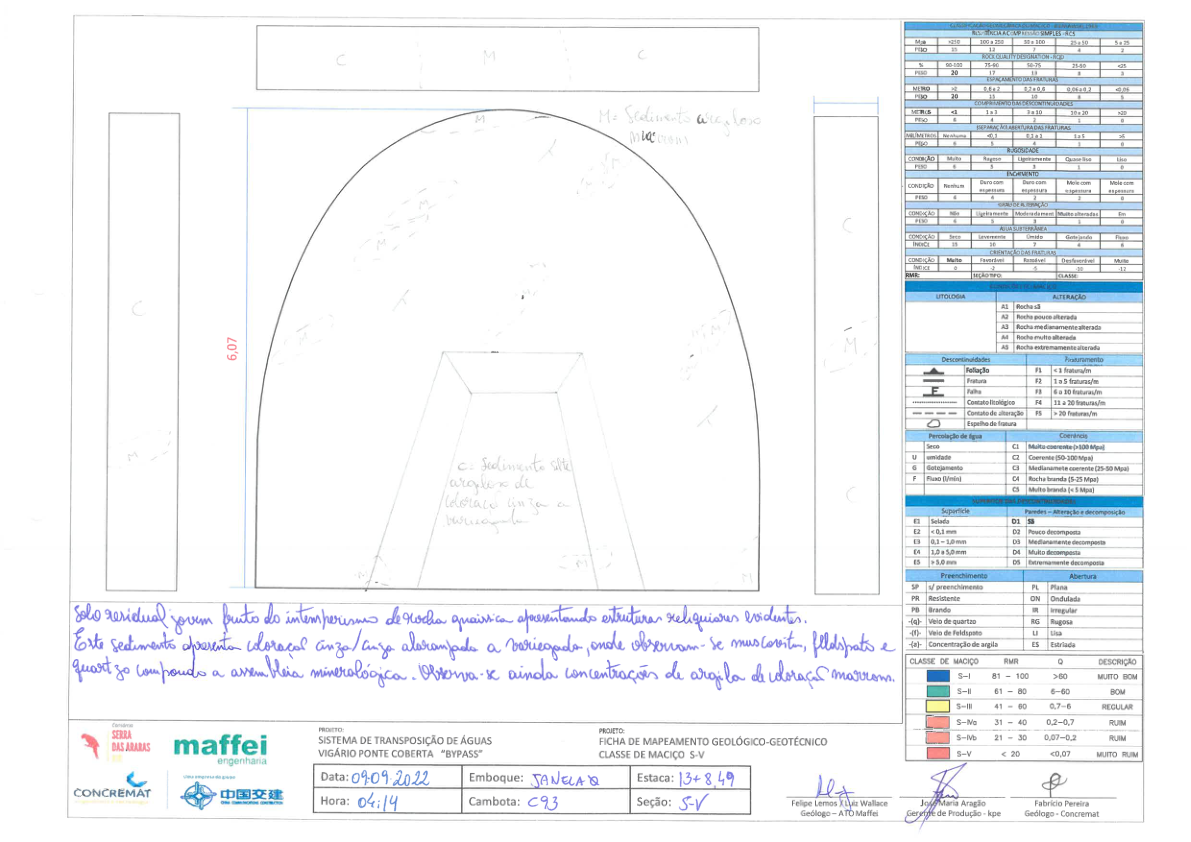 C M C
M
M= Sedimento argiloso
marrom
M
C
C
M
M
M
6,07
C
M
C= Sedimento silte
argiloso de
coloraçã cinza a
variegada
M
M
Solo residual jovem fruto do intemperismo de rocha gnaissica apresentando estruturas reliquiares evidentes.
Este sedimento apresenta coloraçã cinza/cinza alaranjada a variegada, onde observam-se muscovita, feldspato e
quartzo compondo a assembleia mineralógica. Observa-se ainda concentrações de argila de coloraçã marrom.
RESISTÊNCIA A COMPRESSÃO SIMPLES - RCS
MPa >250 100 a 250 50 a 100 25 a 50 5 a 25
PESO 15 12 7 4 2
ROCK QUALITY DESIGNATION - RQD
% 90-100 75-90 50-75 25-50 <25
PESO 20 17 13 8 3
ESPAÇAMENTO DAS FRATURAS
METRO >2 0,6 a 2 0,2 a 0,6 0,06 a 0,2 <0,06
PESO 20 15 10 8 5
COMPRIMENTO DAS DESCONTINUIDADES
METROS <1 1 a 3 3 a 10 10 a 20 >20
PESO 6 4 2 1 0
SEPARAÇÃO/ABERTURA DAS FRATURAS
MILÍMETROS Nenhuma <0,1 0,1 a 1 1 a 5 >5
PESO 6 5 4 1 0
RUGOSIDADE
CONDIÇÃO Muito Rugoso Ligeiramente Quase liso Liso
PESO 6 5 3 1 0
ENCHIMENTO
CONDIÇÃO Nenhum Duro com espessura Duro com espessura Mole com espessura Mole com espessura
PESO 6 4 2 2 0
GRAU DE ALTERAÇÃO
CONDIÇÃO Não Ligeiramente Moderadament Muito alteradas Em
PESO 6 5 3 1 0
ÁGUA SUBTERRÂNEA
CONDIÇÃO Seco Levemente Úmido Gotejando Fluxo
ÍNDICE 15 10 7 4 0
ORIENTAÇÃO DAS FRATURAS
CONDIÇÃO Muito Favorável Razoável Desfavorável Muito
ÍNDICE 0 -2 -5 -10 -12
RMR: SEÇÃO TIPO: CLASSE:
LITOLOGIA ALTERAÇÃO
A1 Rocha sã
A2 Rocha pouco alterada
A3 Rocha medianamente alterada
A4 Rocha muito alterada
A5 Rocha extremamente alterada
Descontinuidades Fraturamento
Foliação F1 < 1 fratura/m
Fratura F2 1 a 5 fraturas/m
F Falha F3 6 a 10 fraturas/m
Contato litológico F4 11 a 20 fraturas/m
Contato de alteração F5 > 20 fraturas/m
Espelho de fratura
Percolação de água Coerência
Seco C1 Muito coerente (>100 Mpa)
U umidade C2 Coerente (50-100 Mpa)
G Gotejamento C3 Medianamete coerente (25-50 Mpa)
F Fluxo (l/min) C4 Rocha branda (5-25 Mpa)
C5 Muito branda (< 5 Mpa)
Superfície Paredes – Alteração e decomposição
E1 Selada D1 Sã
E2 < 0,1 mm D2 Pouco decomposta
E3 0,1 – 1,0 mm D3 Medianamente decomposta
E4 1,0 a 5,0 mm D4 Muito decomposta
E5 > 5,0 mm D5 Extremamente decomposta
Preenchimento Abertura
SP s/ preenchimento PL Plana
PR Resistente ON Ondulada
PB Brando IR Irregular
-(q)- Veio de quartzo RG Rugosa
-(f)- Veio de Feldspato LI Lisa
-(a)- Concentração de argila ES Estriada
CLASSE DE MACIÇO RMR Q DESCRIÇÃO
S-I 81 – 100 >60 MUITO BOM
S-II 61 – 80 6-60 BOM
S-III 41 – 60 0,7-6 REGULAR
S-IVa 31 – 40 0,2-0,7 RUIM
S-IVb 21 – 30 0,07-0,2 RUIM
S-V < 20 <0,07 MUITO RUIM
Consórcio
SERRA
DAS ARARAS
maffei
engenharia
CONCREMAT
Uma empresa do grupo
中国交建
PROJETO:
SISTEMA DE TRANSPOSIÇÃO DE ÁGUAS
VIGÁRIO PONTE COBERTA "BYPASS"
PROJETO:
FICHA DE MAPEAMENTO GEOLÓGICO-GEOTÉCNICO
CLASSE DE MACIÇO S-V
Data: 09.09.2022 Emboque: JANELA 2 Estaca: 13+8,49
Hora: 04:14 Cambota: C93 Seção: S-V
Felipe Lemos / Luiz Wallace
Geólogo – ATO Maffei
José Maria Aragão
Gerente de Produção - kpe
Fabrício Pereira
Geólogo - Concremat